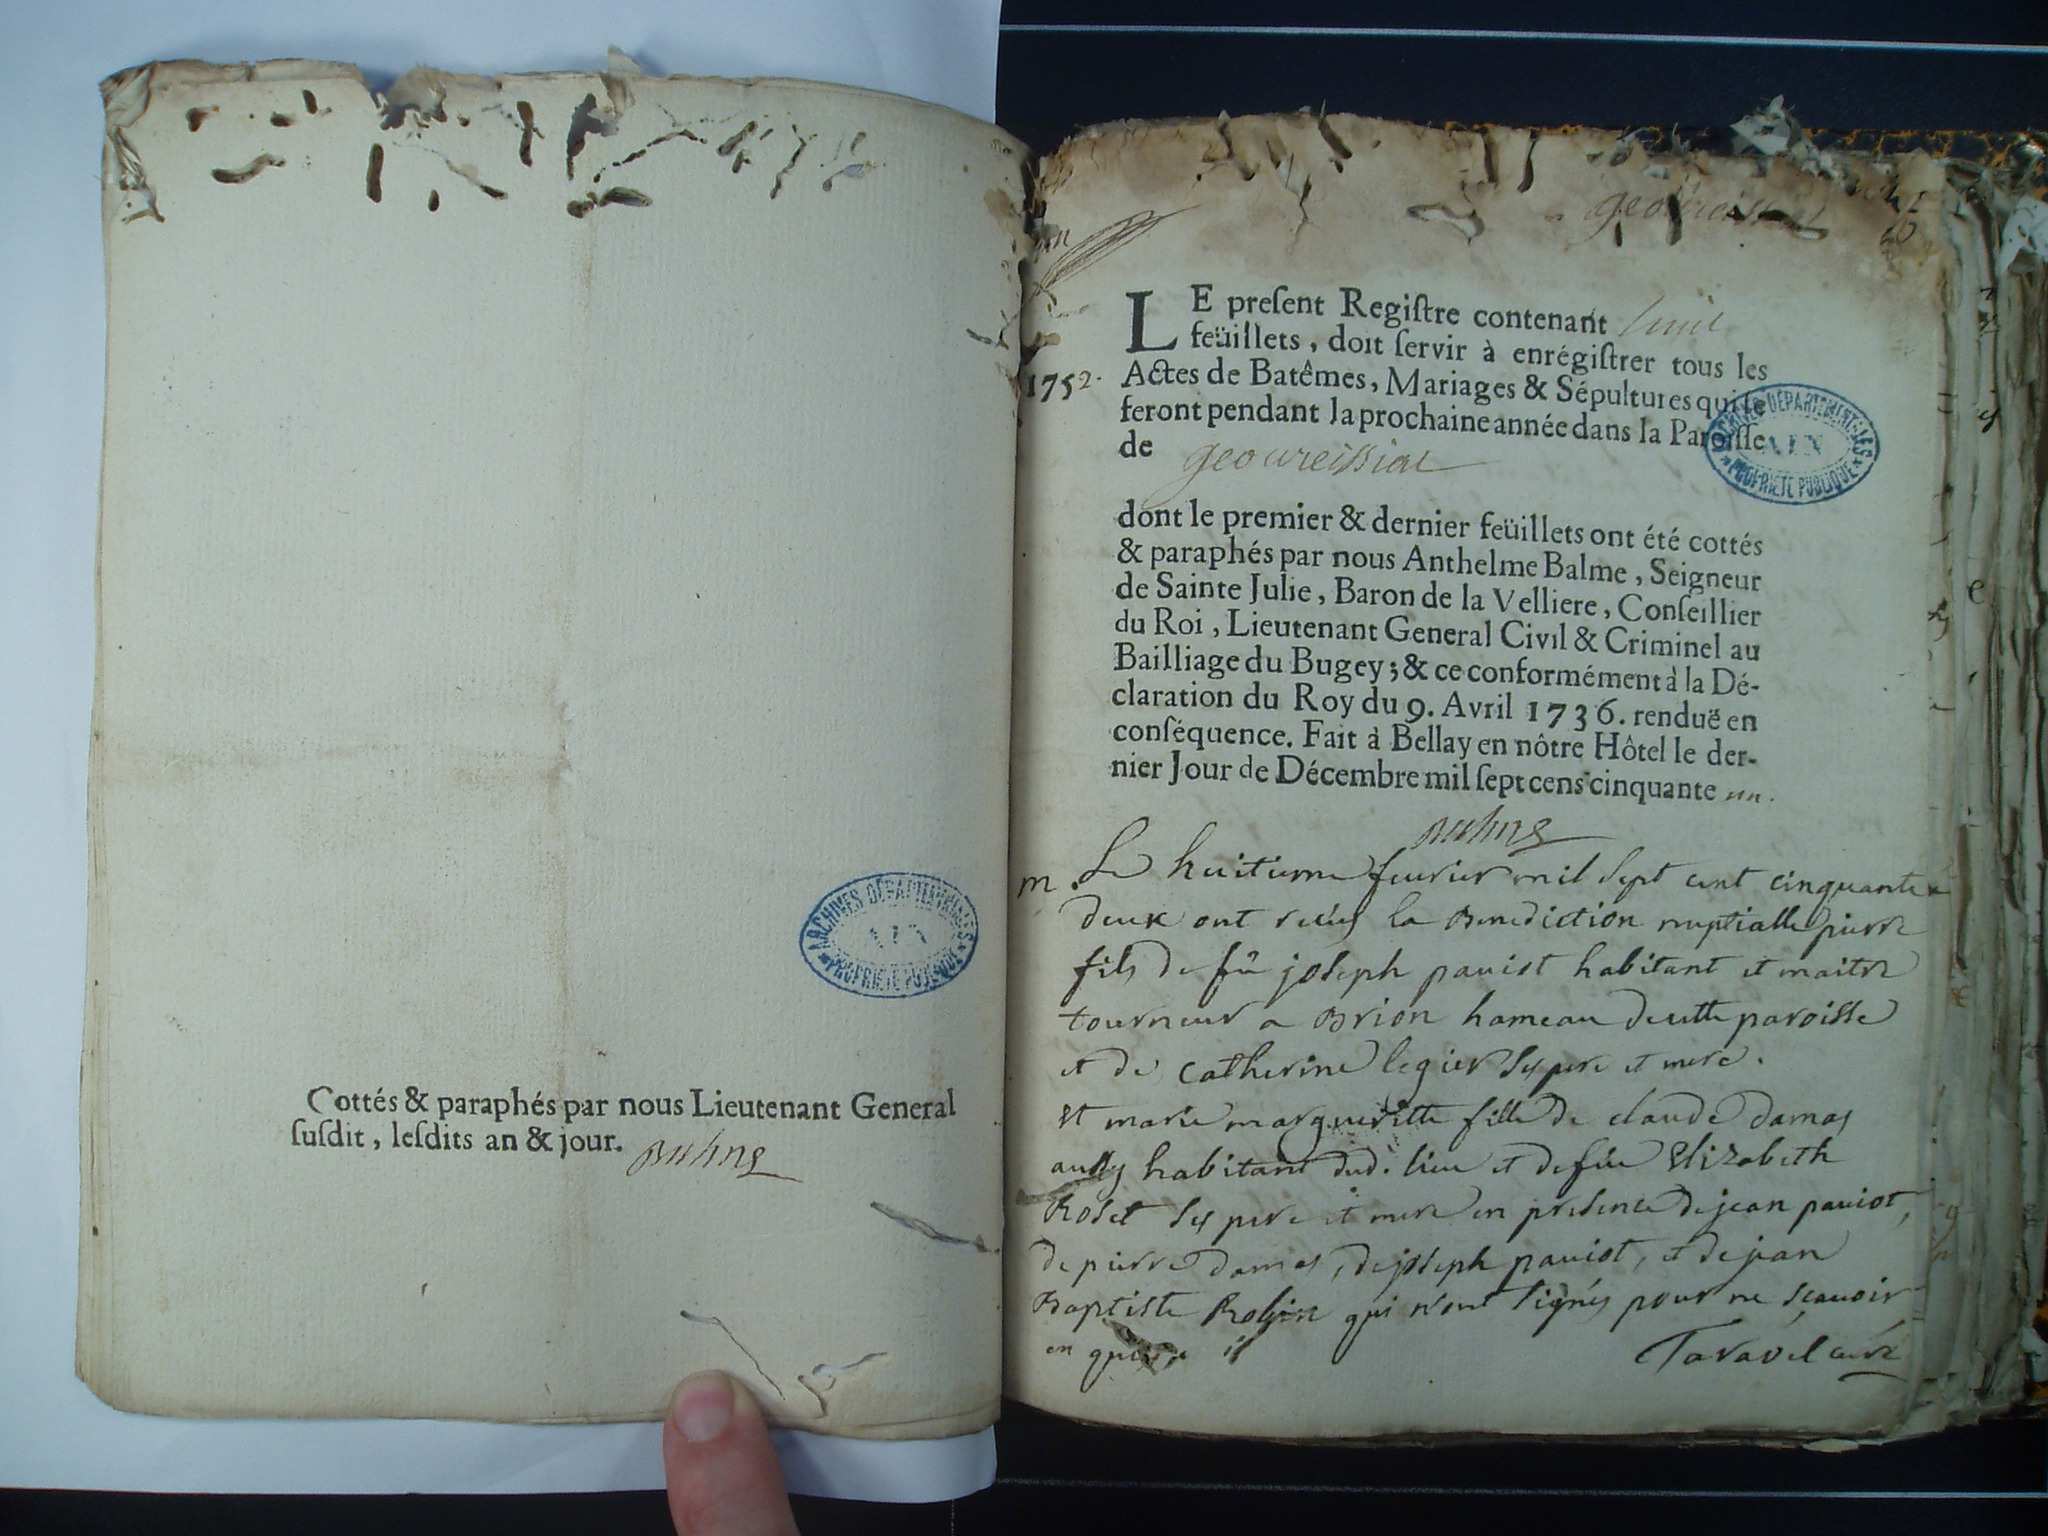 Cottés & paraphés par nous Lieutenant General
susdit, lesdits an & jour.
ARCHIVES DÉPARTEMENTALES
AIN
PROPRIÉTÉ PUBLIQUE
geoureissiat
1752.
LE present Registre contenant huit
feüillets, doit servir à enrégistrer tous les
Actes de Batêmes, Mariages & Sépultures qui se
feront pendant la prochaine année dans la Paroisse
de geoureissiat
ARCHIVES DÉPARTEMENTALES
AIN
PROPRIÉTÉ PUBLIQUE
dont le premier & dernier feüillets ont été cottés
& paraphés par nous Anthelme Balme, Seigneur
de Sainte Julie, Baron de la Velliere, Conseillier
du Roi, Lieutenant General Civil & Criminel au
Bailliage du Bugey; & ce conformément à la Dé-
claration du Roy du 9. Avril 1736. renduë en
conséquence. Fait à Bellay en nôtre Hôtel le der-
nier Jour de Décembre mil sept cens cinquante un.
m. Le huitieme feurier mil sept cent cinquante
deux ont reçus la Benediction nuptialle pierre
fils de fû joseph pauiot habitant et maitre
tourneur a Brion hameau de cette paroisse
et de Catherine legier ses pere et mere.
et marie margueritte fille de claude damas
aussy habitant dud. lieu et de fûe Elizabeth
Roset ses pere et mere en presence de jean pauiot,
de pierre damas, de joseph pauiot, et de jean
Baptiste Robin qui n'ont signés pour ne sçauoir
en quis
Taravel curé